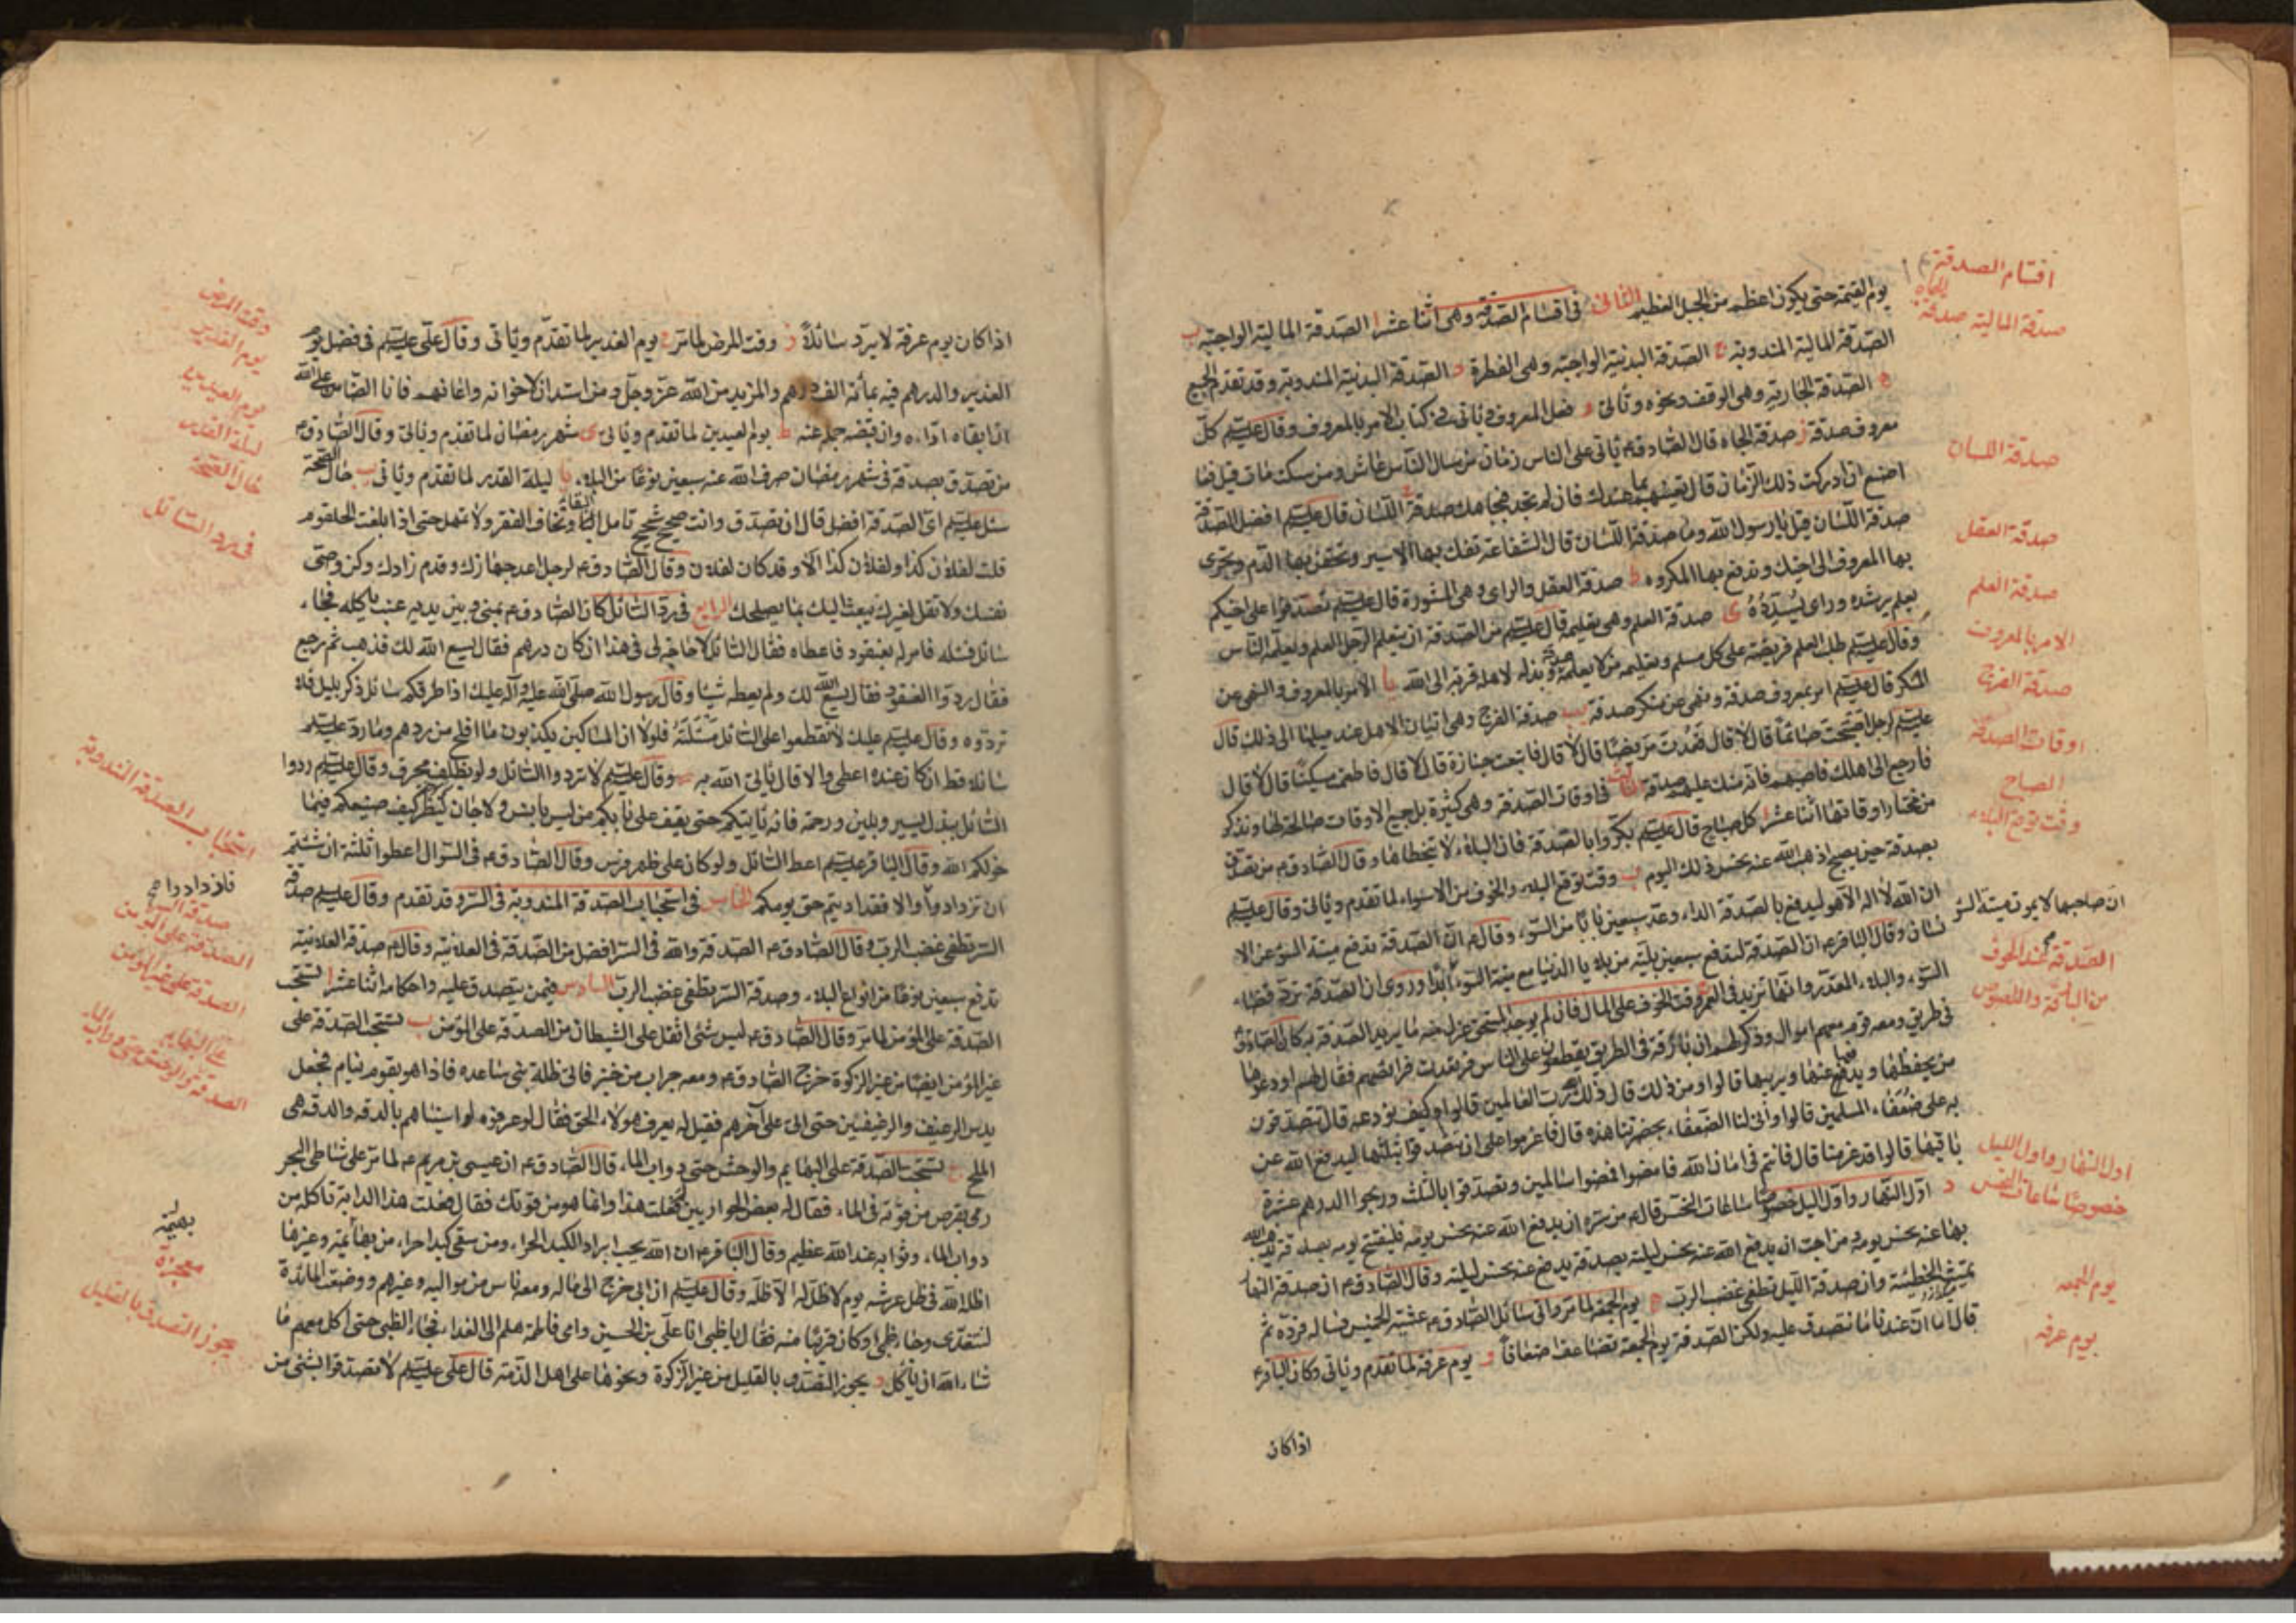 يوم القيمة حتى يكون اعظم من الجبل العظيم الثانى فى اقسام الصدقة وهى اثنا عشر ا الصدقة المالية الواجبة ب
الصدقة المالية المندوبة ج الصدقة البدنية الواجبة وهى الفطرة د الصدقة البدنية المندوبة وقد تقدم الجميع
ه الصدقة الجارية وهى الوقف ونحوه وتأتى و فعل المعروف ويأتى فى كتاب الامر بالمعروف وقال عليه السلم كل
معروف صدقة ز صدقة الجاه قال الصادق ع يأتى على الناس زمان من سال الناس عاش ومن سكت مات قيل فما
اصنع ان ادركت ذلك الزمان قال تعينهم بما عندك فان لم تجد فبجاهك ح صدقة اللسان قال عليه السلم افضل الصدقة
صدقة اللسان قيل يا رسول الله وما صدقة اللسان قال الشفاعة تفك بها الاسير وتحقن بها الدم وتجرى
بها المعروف الى اخيك وتدفع بها المكروه ط صدقة العقل والراى وهى المشورة قال عليه السلم تصدقوا على اخيكم
بعلم يرشده وراى يسدده ى صدقة العلم وهى تعليمه قال عليه السلم من الصدقة ان يتعلم الرجل العلم ويعلمه الناس
وقال عليه السلم طلب العلم فريضة على كل مسلم وتعليمه من لا يعلمه صدقة وبذله لاهله قربة الى الله يا الامر بالمعروف والنهى عن
المنكر قال عليه السلم امر بمعروف صدقة ونهى عن منكر صدقة يب صدقة الفرج وهى اتيان الاهل عند ميلها الى ذلك قال
عليه السلم لرجل اصبحت صائما قال لا قال فعدت مريضا قال لا قال فاتبعت جنازة قال لا قال فاطعمت مسكينا قال لا قال
فارجع الى اهلك فاصبهم فانه منك عليهم صدقة الثالث فى اوقات الصدقة وهى كثيرة بل جميع الاوقات صالحة لها ونذكر
من مختار اوقاتها اثنا عشر ا كل صباح قال عليه السلم بكروا بالصدقة فان البلاء لا يتخطاها وقال الصادق ع من تصدق
بصدقة حين يصبح اذهب الله عنه نحس ذلك اليوم ب وقت توقع البلاء والخوف من الاسواء لما تقدم ويأتى وقال عليه السلم
ان الله لا اله الا هو ليدفع بالصدقة الداء وعد سبعين بابا من السوء وقال ع ان الصدقة تدفع ميتة السوء عن الا
نسان وقال الباقر ع ان الصدقة لتدفع سبعين بلية من بلايا الدنيا مع ميتة السوء ابدا وروى ان الصدقة ترد قضاء
السوء والبلاء المقدر وانها تزيد فى العمر ج وقت الخوف على المال فان لم يوجد المستحق عزل منه ما يريد الصدقة به كان الصادق ع
فى طريق ومعه قوم معهم اموال وذكر لهم ان بارقة فى الطريق يقطعون على الناس فرتعدت فرائصهم فقال لهم اودعوها
من يحفظها ويدفع عنها ويربيها قالوا ومن ذلك قال ذلك رب العالمين قالوا وكيف نودعه قال تتصدقون
به على ضعفاء المسلمين قالوا وانى لنا الضعفاء بحضرتنا هذه قال فاعزموا على ان تصدقوا بثلثها ليدفع الله عن
باقيها قالوا قد عزمنا قال فانتم فى امان الله فامضوا فمضوا سالمين وتصدقوا بالثلث وربحوا الدرهم عشرة
د اول النهار واول الليل خصوصا ساعات النحس قال ع من سره ان يدفع الله عنه نحس يومه فليفتتح يومه بصدقة يذهب الله
بها عنه نحس يومه ومن احب ان يدفع الله عنه نحس ليلته بصدقة يدفع عنه نحس ليلته وقال الصادق ع ان صدقة النهار
تميث الخطيئة وان صدقة الليل تطفى غضب الرب ه يوم الجمعة لما مر واتى سائل الصادق ع عشية الخميس فساله فرده ثم
قال اما ان عندنا ما نتصدق عليه ولكن الصدقة يوم الجمعة تضاعف اضعافا و يوم عرفة لما تقدم ويأتى وكان الباقر ع
اذا كان
اقسام الصدقة
صدقة المالية صدقة الجاه
صدقة اللسان
صدقة العقل
صدقة العلم
الامر بالمعروف
صدقة الفرج
اوقات الصدقة
الصباح
وقت توقع البلاء
ان صاحبها لا يموت ميتة السو
الصدقة عند الخوف
من البارقة واللصوص
اول النهار واول الليل
خصوصا ساعات النحس
يوم الجمعه
يوم عرفه
اذا كان يوم عرفة لا يرد سائلا ز وقت المرض لما مر ح يوم الغدير لما تقدم ويأتى وقال على عليه السلم فى فضل يوم
الغدير والدرهم فيه بمائة الف درهم والمزيد من الله عز وجل ومن استدان لاخوانه واعانهم فانا الضامن على الله
ان ابقاه اداه وان قبضه حمله عنه ط يوم العيدين لما تقدم ويأتى ى شهر رمضان لما تقدم ويأتى وقال الصادق ع
من تصدق بصدقة فى شهر رمضان صرف الله عنه سبعين نوعا من البلاء يا ليلة القدر لما تقدم ويأتى يب حال الصحة
سئل عليه السلم اى الصدقة افضل قال ان تصدق وانت صحيح شحيح تامل البقاء وتخاف الفقر ولا تمهل حتى اذا بلغت الحلقوم
قلت لفلان كذا ولفلان كذا الا وقد كان لفلان وقال الصادق ع لرجل اعد جهازك وقدم زادك وكن وصى
نفسك ولا تقل لغيرك يبعث اليك بما يصلحك الرابع فى رد السائل كان الصادق ع بمنى وبين يديه عنب ياكله فجاء
سائل فسئله فامر له بعنقود فاعطاه فقال السائل لا حاجة لى فى هذا ان كان درهم فقال يسع الله لك فذهب ثم رجع
فقال ردوا العنقود فقال يسع الله لك ولم يعطه شيئا وقال رسول الله صلى الله عليه وآله عليك اذا طرقكم سائل ذكر بليل فلا
تردوه وقال عليه السلم عليك لا تقطعوا على السائل مسئلته فلولا ان المساكين يكذبون ما افلح من ردهم وما رد عليه السلم
سائلا قط ان كان عنده اعطى والا قال يأتى الله به وقال عليه السلم لا تردوا السائل ولو بظلف محرق وقال عليه السلم ردوا
السائل ببذل يسير وبلين ورحمة فانه يأتيكم حتى يقف على بابكم من ليس بانس ولا جان لينظر كيف صنيعكم فيما
خولكم الله وقال الباقر عليه السلم اعط السائل ولو كان على ظهر فرس وقال الصادق ع فى السؤال اعطوا ثلثة ان شئتم
ان تزدادوا والا فقد اديتم حق يومكم الخامس فى استحباب الصدقة المندوبة فى السر وقد تقدم وقال عليه السلم صدقة
السر تطفى غضب الرب وقال الصادق ع الصدقة والله فى السر افضل من الصدقة فى العلانية وقال ع صدقة العلانية
تدفع سبعين نوعا من انواع البلاء وصدقة السر تطفى غضب الرب السادس فيمن يتصدق عليه واحكامه اثنا عشر ا تستحب
الصدقة على المؤمن لما مر وقال الصادق ع ليس شئ اثقل على الشيطان من الصدقة على المؤمن ب تستحب الصدقة على
غير المؤمن ايضا من غير الزكوة خرج الصادق ع ومعه جراب من خبز فاتى ظلة بنى ساعده فاذا هو بقوم نيام فجعل
يدس الرغيف والرغيفين حتى اتى على آخرهم فقيل له يعرف هولاء الحق فقال لو عرفوه لواسيناهم بالدقه والدقه هى
الملح ج تستحب الصدقة على البهائم والوحش حتى دواب الماء قال الصادق ع ان عيسى بن مريم ع لما مر على شاطى البحر
رمى بقرص من قوته فى الماء فقال له بعض الحواريين لم فعلت هذا وانما هو من قوتك فقال فعلت هذا لدابة تاكله من
دواب الماء وثوابه عند الله عظيم وقال الباقر ع ان الله يحب ابراد الكبد الحراء ومن سقى كبدا حراء من بهائم وغيرها
اظله الله فى ظل عرشه يوم لا ظل الا ظله وقال عليه السلم ان ابى خرج الى ماله ومعه ناس من مواليه وغيرهم ووضعت المائدة
لنتغدى وجاء ظبى وكان قريبا منه فقال يا ظبى انا على بن الحسين وامى فاطمة هلم الى الغداء فجاء الظبى حتى اكل معهم ما
شاء الله ان ياكل د يجوز التصدق بالقليل من غير الزكوة ونحوها على اهل الذمة قال على عليه السلم لا تصدقوا بشئ من
وقت المرض
يوم الغدير
يوم العيدين
ليلة القدر
حال الصحة
فى رد السائل
استحباب الصدقة المندوبة
صدقة السر
الصدقة على المؤمن
الصدقة على غير المؤمن
على البهايم
الصدقة والوحش حتى دواب الماء
بهيمة
معجزة
يجوز التصدق بالقليل